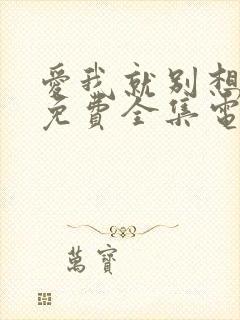 愛我就別想
免費全集電
萬寶